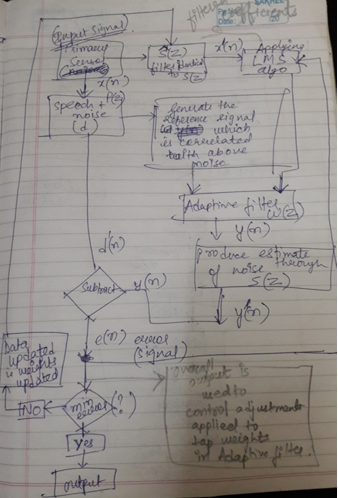 filter coefficients
Input Signal
Primary
Sensor
S(Z)
filter
to S(Z)
x'(n)
Applying
LMS
algo
x(n)
P(z)
Speech +
noise
(d)
Generate the
reference signal
which
is correlated
with above
noise
Adaptive filter
W(Z)
y(n)
produce estimate
of noise through
S(Z)
d'(n)
Subtract
y(n)
y'(n)
e(n) error
(signal)
Data
updated
is weights
updated
NO
min
error
(?)
Yes
output
overall
output is
used to
control adjustments
applied to
tap weights
in Adaptive filter.